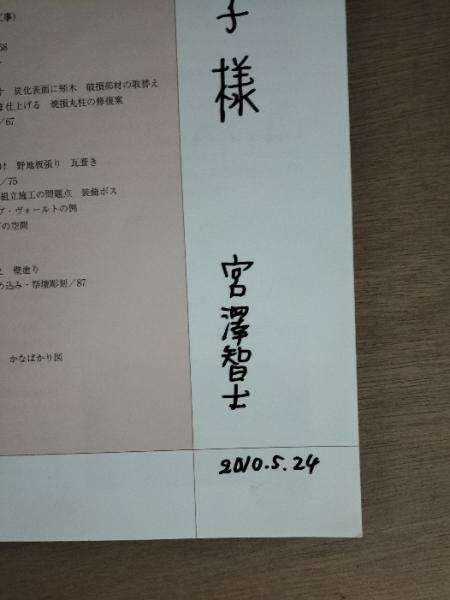 工事）
68
す　炭化表面に矧木　破損部材の取替え
ま仕上げる　焼損丸柱の修復案
／67
け　野地板張り　瓦葺き
／75
組立施工の問題点　装飾ボス
ア・ヴォールトの例
げの空間
え　壁塗り
め込み・祭壇彫刻／87
かなばかり図
子様
宮澤智士
2010.5.24